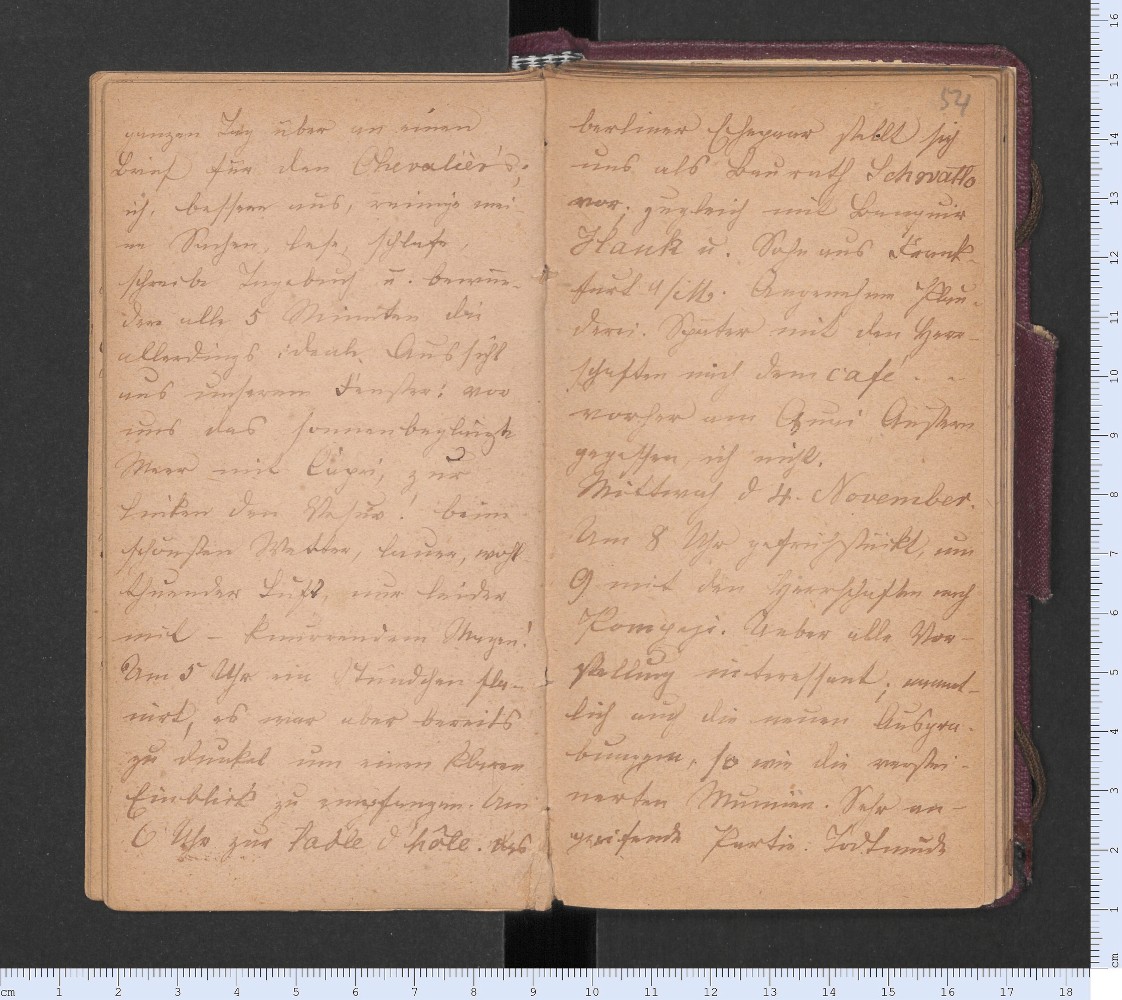 ganzen Tag über an einen
Brief für den Chevalier's;
ich, bessere aus, reinige mei-
ne Sachen, lese, schlafe,
schreibe Tagebuch u. bewun-
dere alle 5 Minuten die
allerdings ideale Aussicht
aus unserem Fenster: vor
uns das sonnenbeglänzte
Meer mit Capri, zur
linken den Vesuv. beim
schönsten Wetter, lauer, wohl-
thuender Luft, nur leider
mit – knurrendem Magen!
Um 5 Uhr ein Stündchen fla-
nirt, es war aber bereits
zu dunkel um einen klaren
Einblick zu empfangen. Um
6 Uhr zur table d'hôte. das
54
berliner Ehepaar stellt sich
uns als Baurath Schwatlo
vor, zugleich mit Banquir
Hank u. Sohn aus Frank-
furt a/M. Angenehme Plau-
derei. Später mit den Herr-
schaften nach dem café . . -
vorher am Quai Austern
gegessen, ich nicht.
Mittwoch d 4. November.
Um 8 Uhr gefrühstückt, um
9 mit den Herrschaften nach
Pompeji. Ueber alle Vor-
stellung interessant; nament-
lich auch die neuen Ausgra-
bungen, so wie die verstei-
nerten Mumien. Sehr an-
greifende Partie. Todtmüde